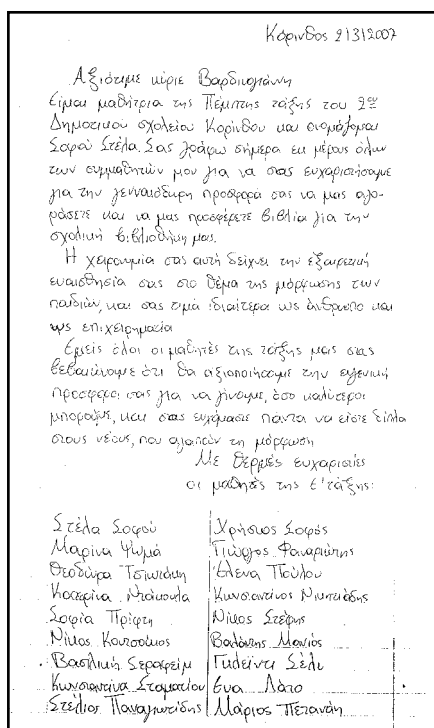 Κόρινθος 2/3/2007
Αξιότιμε κύριε Βαρδινογιάννη
Είμαι μαθήτρια της Πέμπτης τάξης του 2ου
Δημοτικού σχολείου Κορίνθου και ονομάζομαι
Σοφού Στέλα. Σας γράφω σήμερα εκ μέρους όλων
των συμμαθητών μου για να σας ευχαριστήσουμε
για την γενναιόδωρη προσφορά σας να μας αγο-
ράσετε και να μας προσφέρετε βιβλία για την
σχολική βιβλιοθήκη μας.
Η χειρονομία σας αυτή δείχνει την εξαιρετική
ευαισθησία σας στο θέμα της μόρφωσης των
παιδιών, και σας τιμά ιδιαίτερα ως άνθρωπο και
ως επιχειρηματία
Εμείς όλοι οι μαθητές της τάξης μας σας
βεβαιώνουμε ότι θα αξιοποιήσουμε την ευγενική
προσφορά σας για να γίνουμε, όσο καλύτεροι
μπορούμε, και σας ευχόμαστε πάντα να είστε δίπλα
στους νέους, που αγαπούν τη μόρφωση
Με θερμές ευχαριστίες
οι μαθητές της Ε' τάξης:
Στέλα Σοφού
Μαρίνα Ψωμά
Θεοδώρα Τσιωτάκη
Κατερίνα Ντάκουλα
Σοφία Πρίφτη
Νίκος Κουτσούκος
Βασιλική Σεραφείμ
Κωνσταντίνα Σταματίου
Στέλιος Παναγιωτίδης
Χρήστος Σοφός
Γιώργος Φαναριώτης
Έλενα Πούλου
Κωνσταντίνος
Νίκος Στέφης
Βαλάντης Μάνιος
Γκλείντι Σέλι
Εύα Λάτο
Μάριος Πετανάη